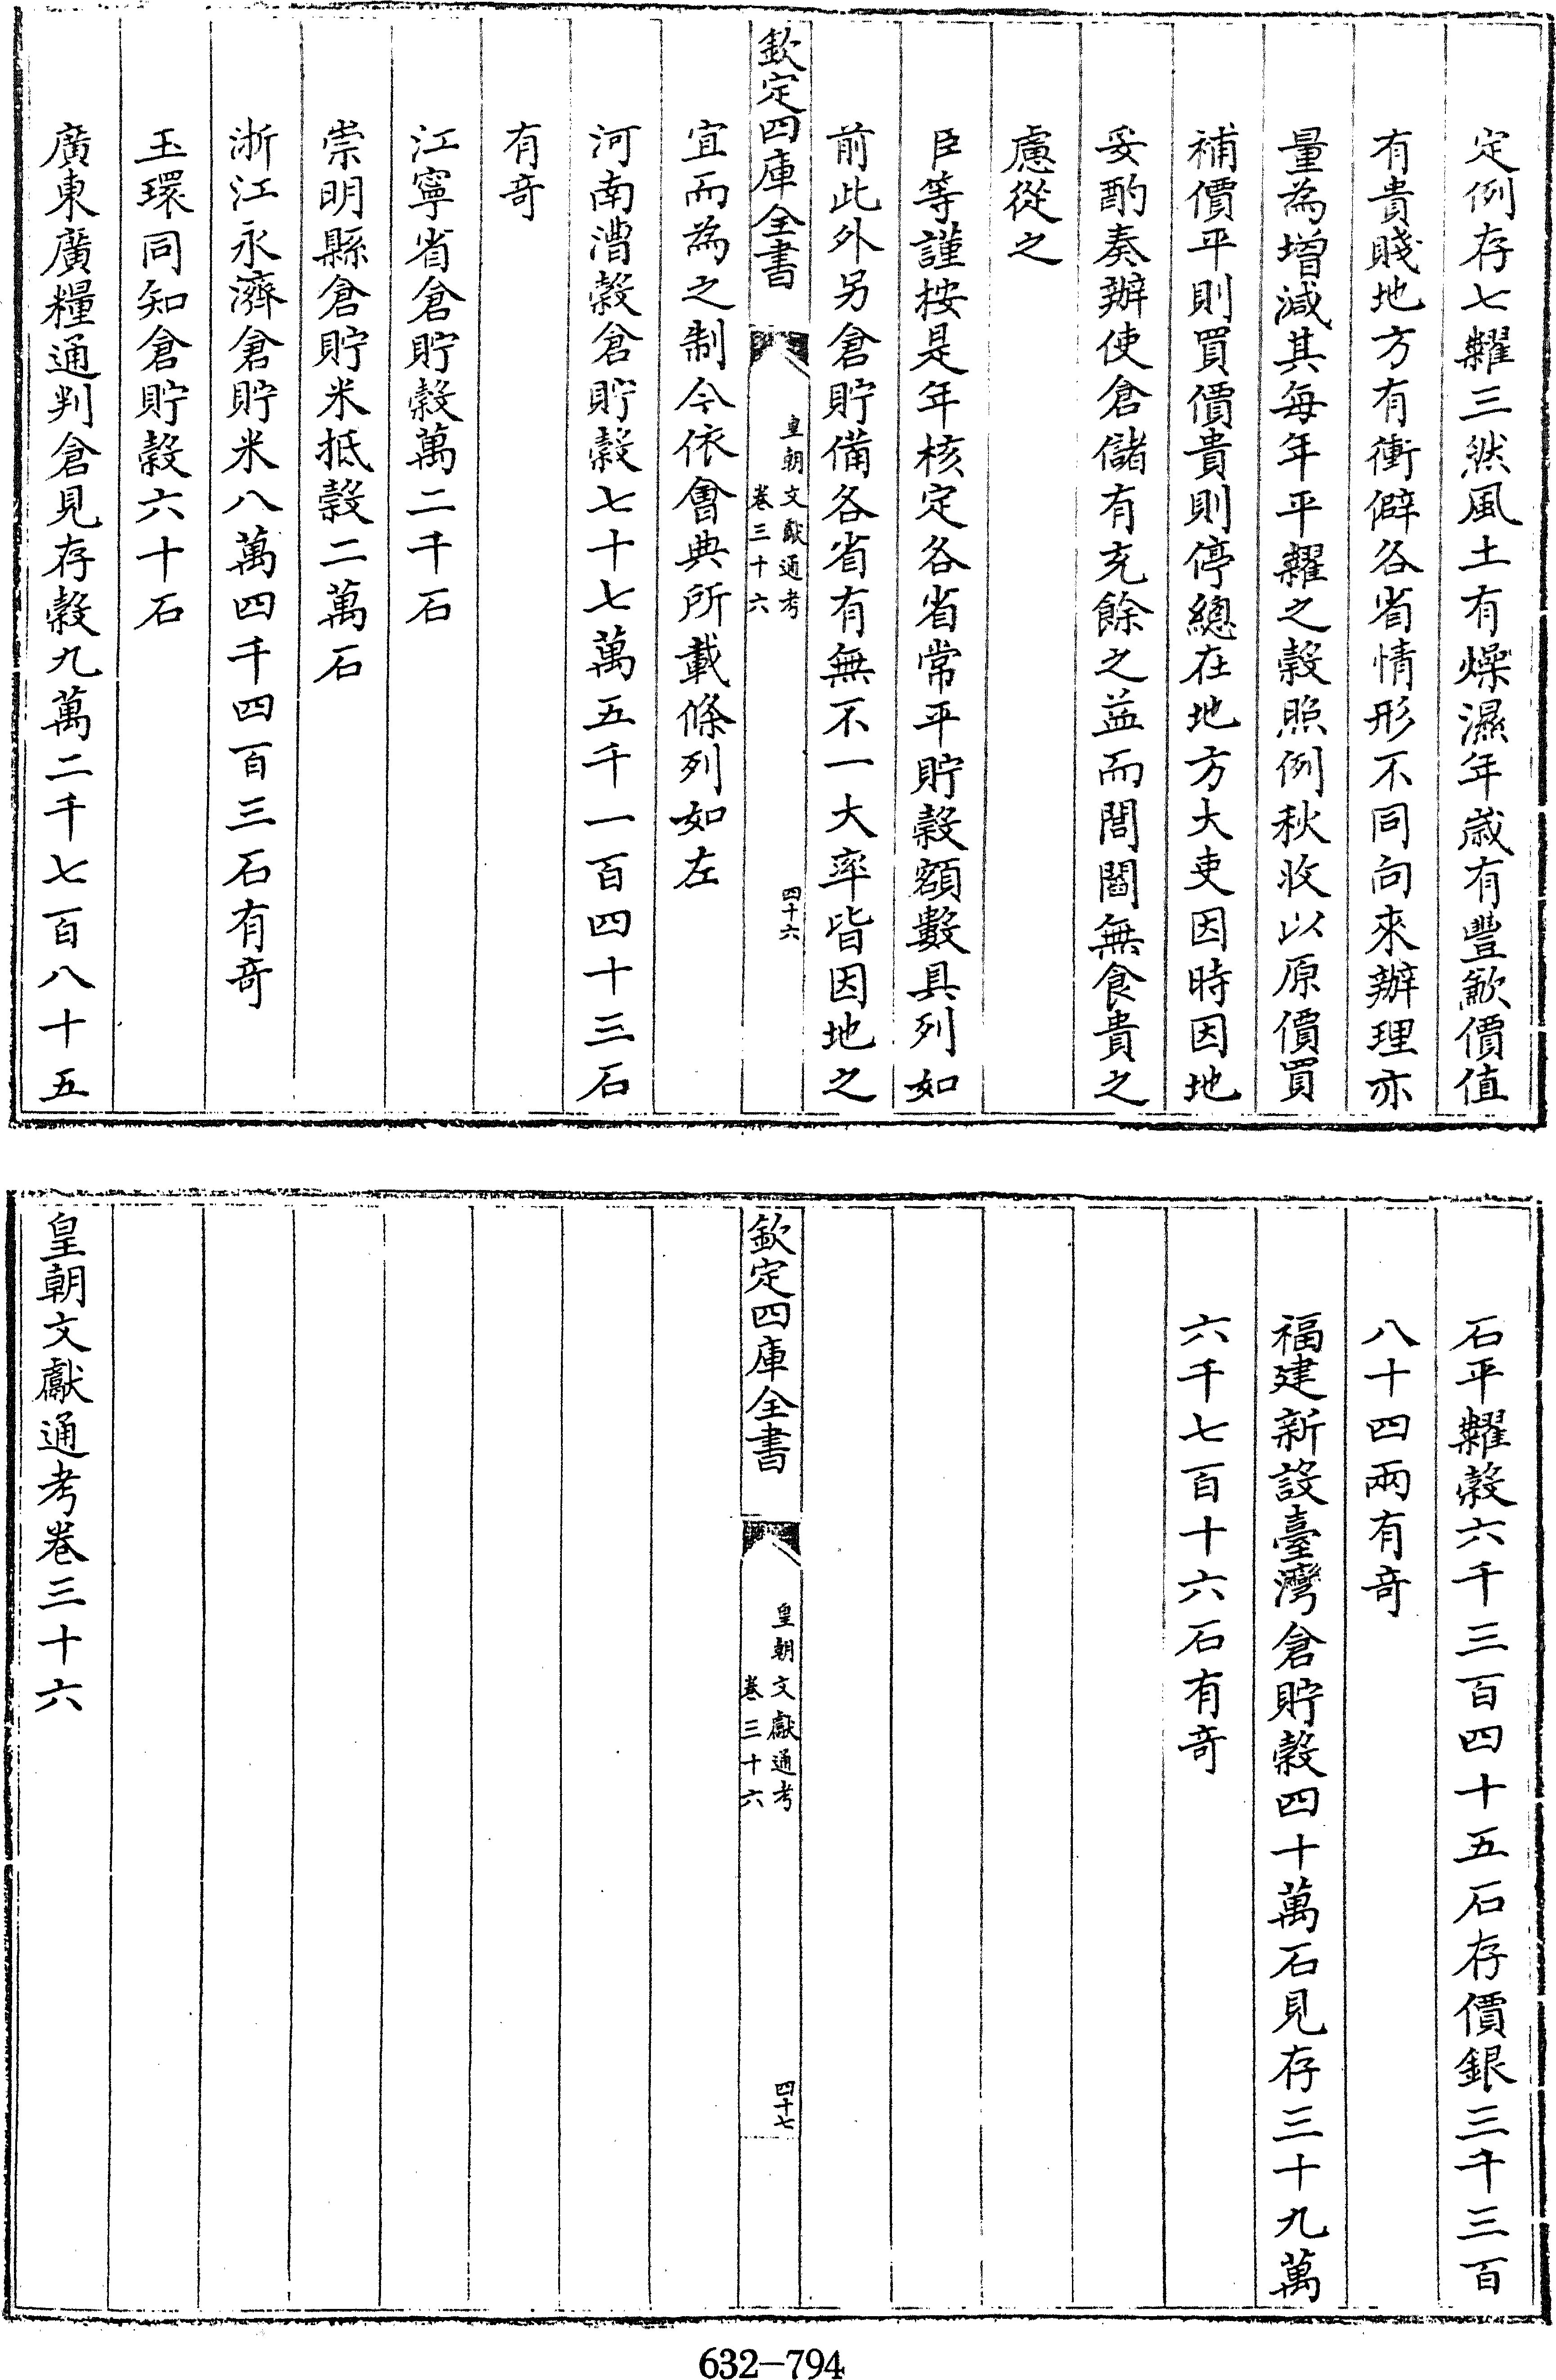 定例存七糶三然風土有燥濕年歲有豐歉價值
有貴賤地方有衝僻各省情形不同向來辦理亦
量為增減其每年平糶之穀照例秋收以原價買
補價平則買價貴則停總在地方大吏因時因地
妥酌奏辦使倉儲有充餘之益而閭閻無食貴之
慮從之
臣等謹按是年核定各省常平貯穀額數具列如
前此外另倉貯備各省有無不一大率皆因地之
欽定四庫全書
皇朝文獻通考
卷三十六
四十六
宜而為之制今依會典所載條列如左
河南漕穀倉貯穀七十七萬五千一百四十三石
有奇
江寧省倉貯穀萬二千石
崇明縣倉貯米抵穀二萬石
浙江永濟倉貯米八萬四千四百三石有奇
玉環同知倉貯穀六十石
廣東廣糧通判倉見存穀九萬二千七百八十五
石平糶穀六千三百四十五石存價銀三千三百
八十四兩有奇
福建新設臺灣倉貯穀四十萬石見存三十九萬
六千七百十六石有奇
欽定四庫全書
皇朝文獻通考
卷三十六
四十七
皇朝文獻通考卷三十六
632-794